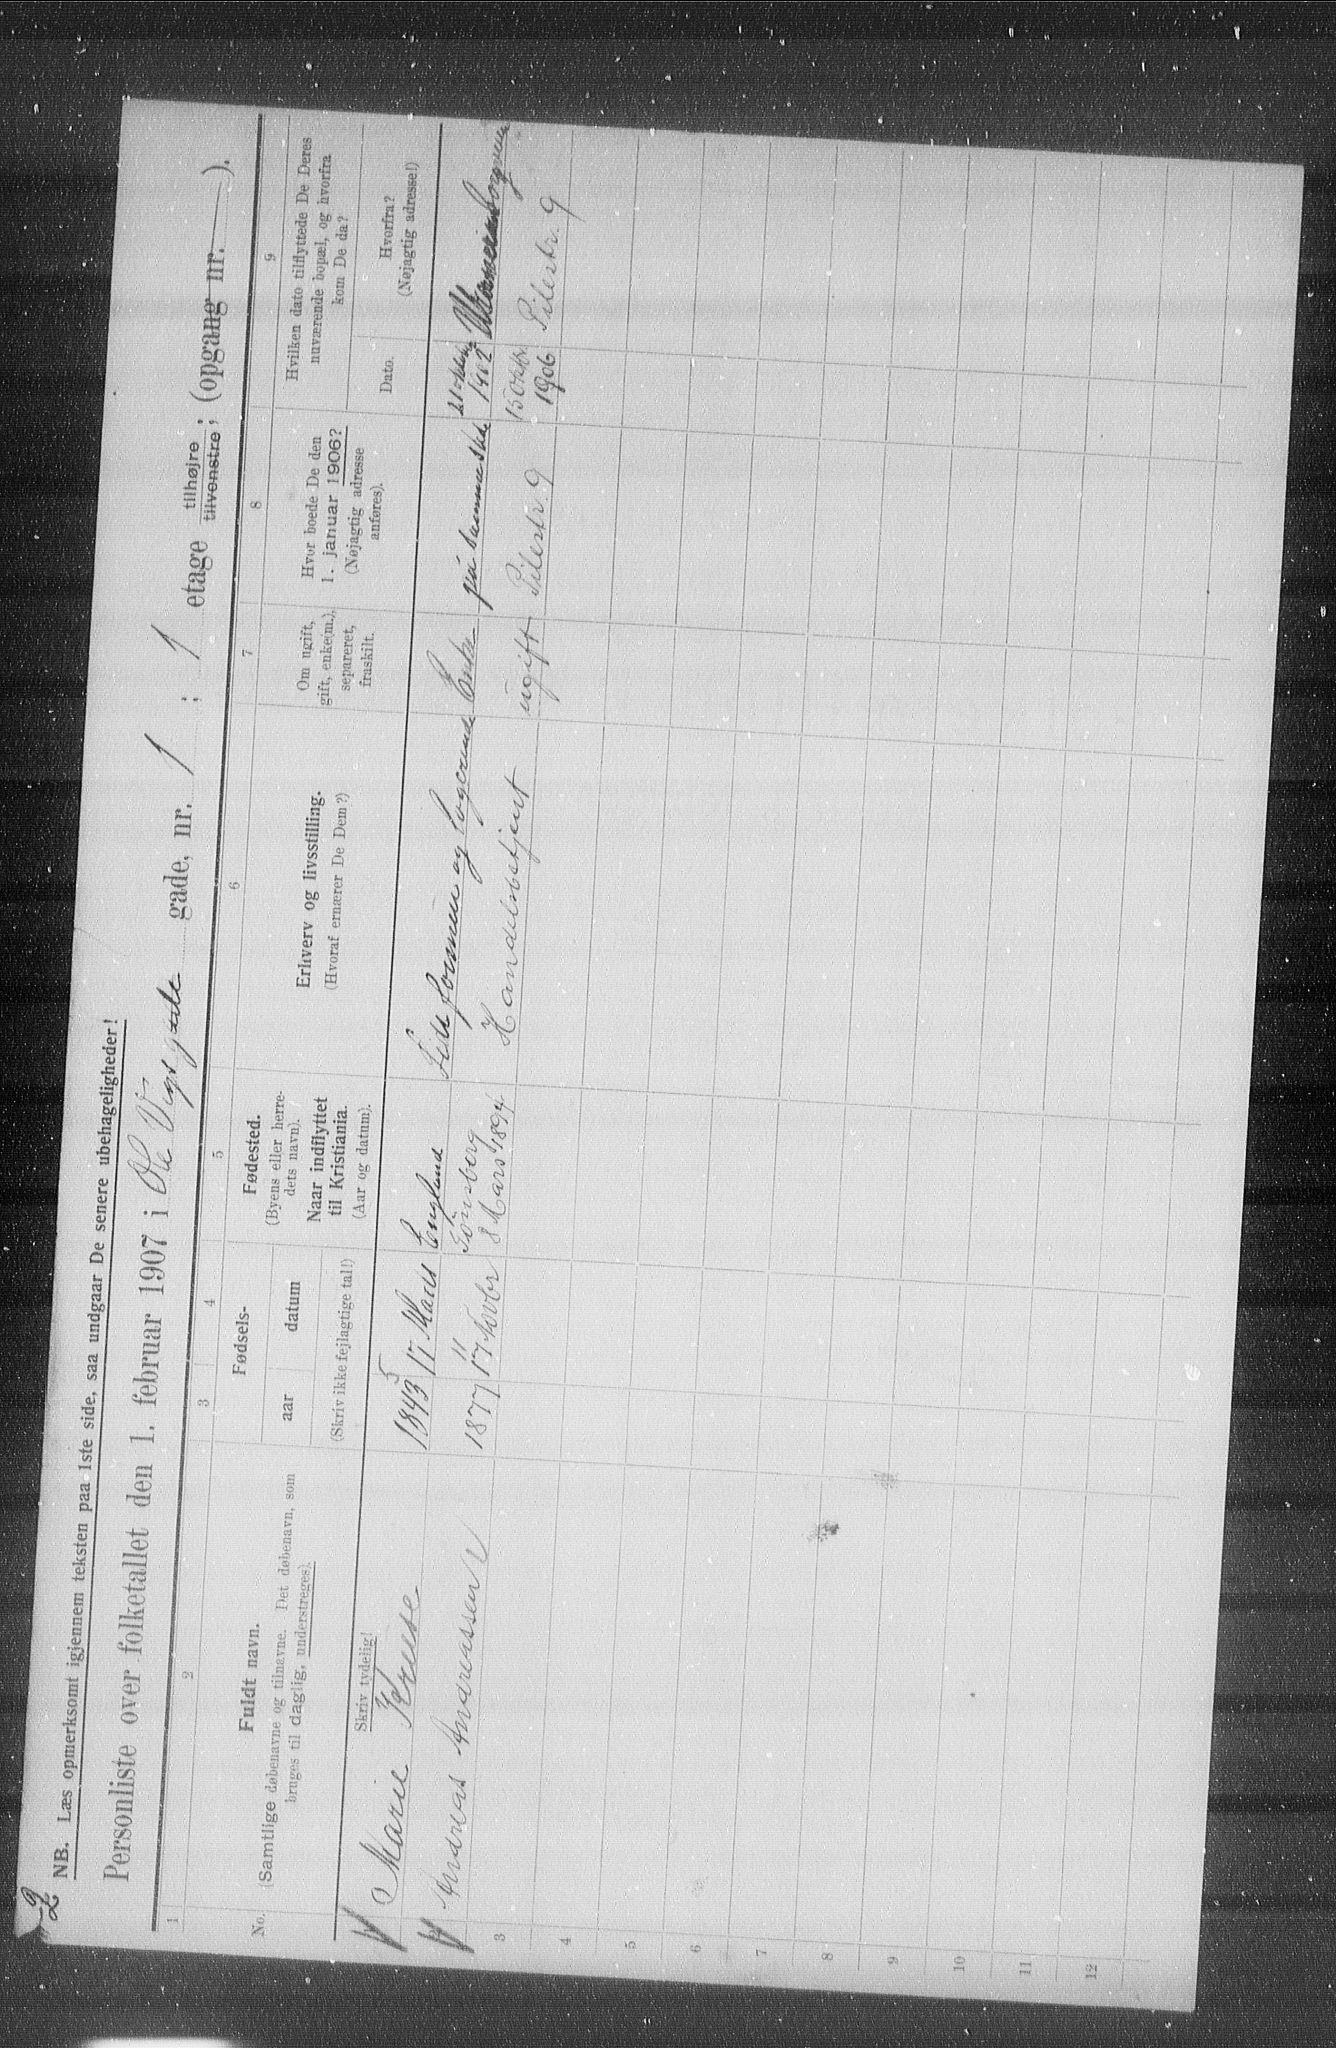 2
NB. Læs opmerksomt igjennem teksten paa 1ste side, saa undgaar De senere ubehageligheder!
Personliste over folketallet den 1. februar 1907 i Ole Vigsgade gade, nr. 1 ; 1 etage tilhøjre tilvenstre; (opgang nr. — ).
1 2 3 4 5 6 7 8 9
No.
Fuldt navn.
(Samtlige døbenavne og tilnavne. Det døbenavn, som
bruges til daglig, understreges).
Skriv tydelig!
Fødsels-
aar datum
(Skriv ikke fejlagtige tal!)
Fødested.
(Byens eller herre-
dets navn).
Naar indflyttet
til Kristiania.
(Aar og datum).
Erhverv og livsstilling.
(Hvoraf ernærer De Dem?)
Om ugift,
gift, enke(m.),
separeret,
fraskilt.
Hvor boede De den
1. januar 1906?
(Nøjagtig adresse
anføres).
Hvilken dato tilflyttede De Deres
nuværende bopæl, og hvorfra
kom De da?
Dato.
Hvorfra?
(Nøjagtig adresse!)
Marie Kruse 1843 5 17 Marts England formue og logerende Enke på samme sted 21
Andreas Andreassen 1877 17 11 Novbr Tönsberg 8 Mars 1894 Handelsbetjent ugift Pilestr. 9 15 Oktbr. 1906 Pilestr. 9
3
4
5
6
7
8
9
10
11
12